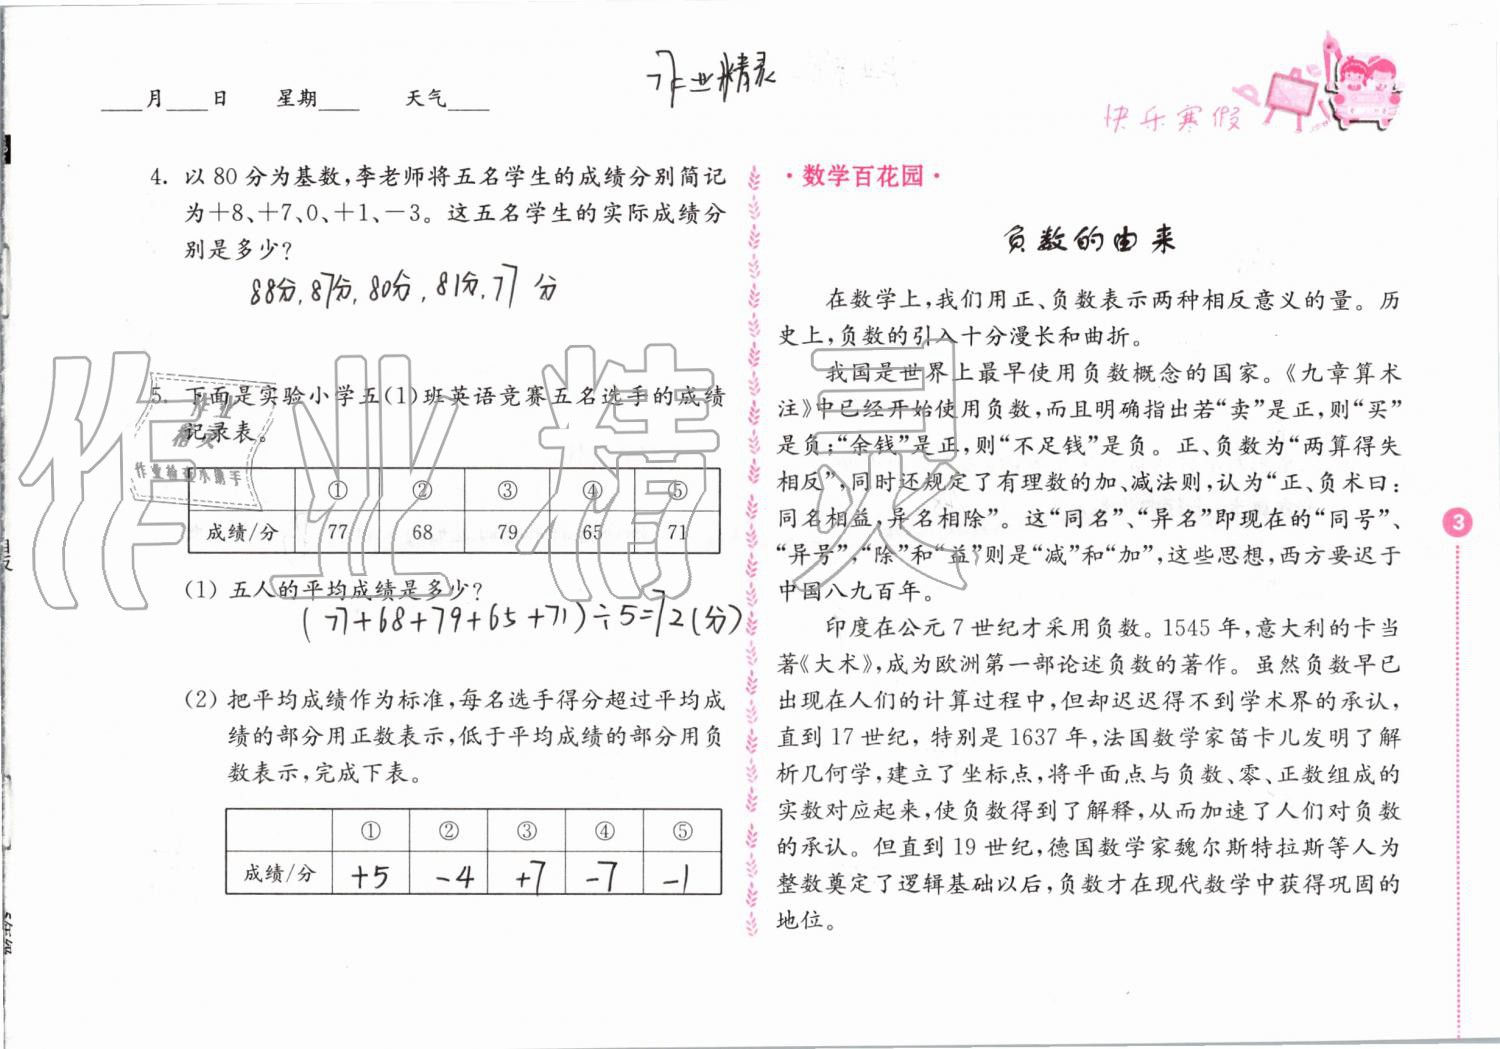 作业精灵
____月____日 星期____ 天气____
快乐寒假
4. 以 80 分为基数,李老师将五名学生的成绩分别简记
为+8、+7、0、+1、-3。这五名学生的实际成绩分
别是多少?
88分,87分,80分,81分,77分
5. 下面是实验小学五(1)班英语竞赛五名选手的成绩
记录表。
① ② ③ ④ ⑤
成绩/分 77 68 79 65 71
(1) 五人的平均成绩是多少?
(77+68+79+65+71)÷5=72(分)
(2) 把平均成绩作为标准,每名选手得分超过平均成
绩的部分用正数表示,低于平均成绩的部分用负
数表示,完成下表。
① ② ③ ④ ⑤
成绩/分 +5 -4 +7 -7 -1
·数学百花园·
负数的由来
在数学上,我们用正、负数表示两种相反意义的量。历
史上,负数的引入十分漫长和曲折。
我国是世界上最早使用负数概念的国家。《九章算术
注》中已经开始使用负数,而且明确指出若“卖”是正,则“买”
是负;“余钱”是正,则“不足钱”是负。正、负数为“两算得失
相反”,同时还规定了有理数的加、减法则,认为“正、负术曰:
同名相益,异名相除”。这“同名”、“异名”即现在的“同号”、
“异号”,“除”和“益”则是“减”和“加”,这些思想,西方要迟于
中国八九百年。
印度在公元 7 世纪才采用负数。1545 年,意大利的卡当
著《大术》,成为欧洲第一部论述负数的著作。虽然负数早已
出现在人们的计算过程中,但却迟迟得不到学术界的承认,
直到 17 世纪, 特别是 1637 年,法国数学家笛卡儿发明了解
析几何学,建立了坐标点,将平面点与负数、零、正数组成的
实数对应起来,使负数得到了解释,从而加速了人们对负数
的承认。但直到 19 世纪,德国数学家魏尔斯特拉斯等人为
整数奠定了逻辑基础以后,负数才在现代数学中获得巩固的
地位。
3
作业精灵